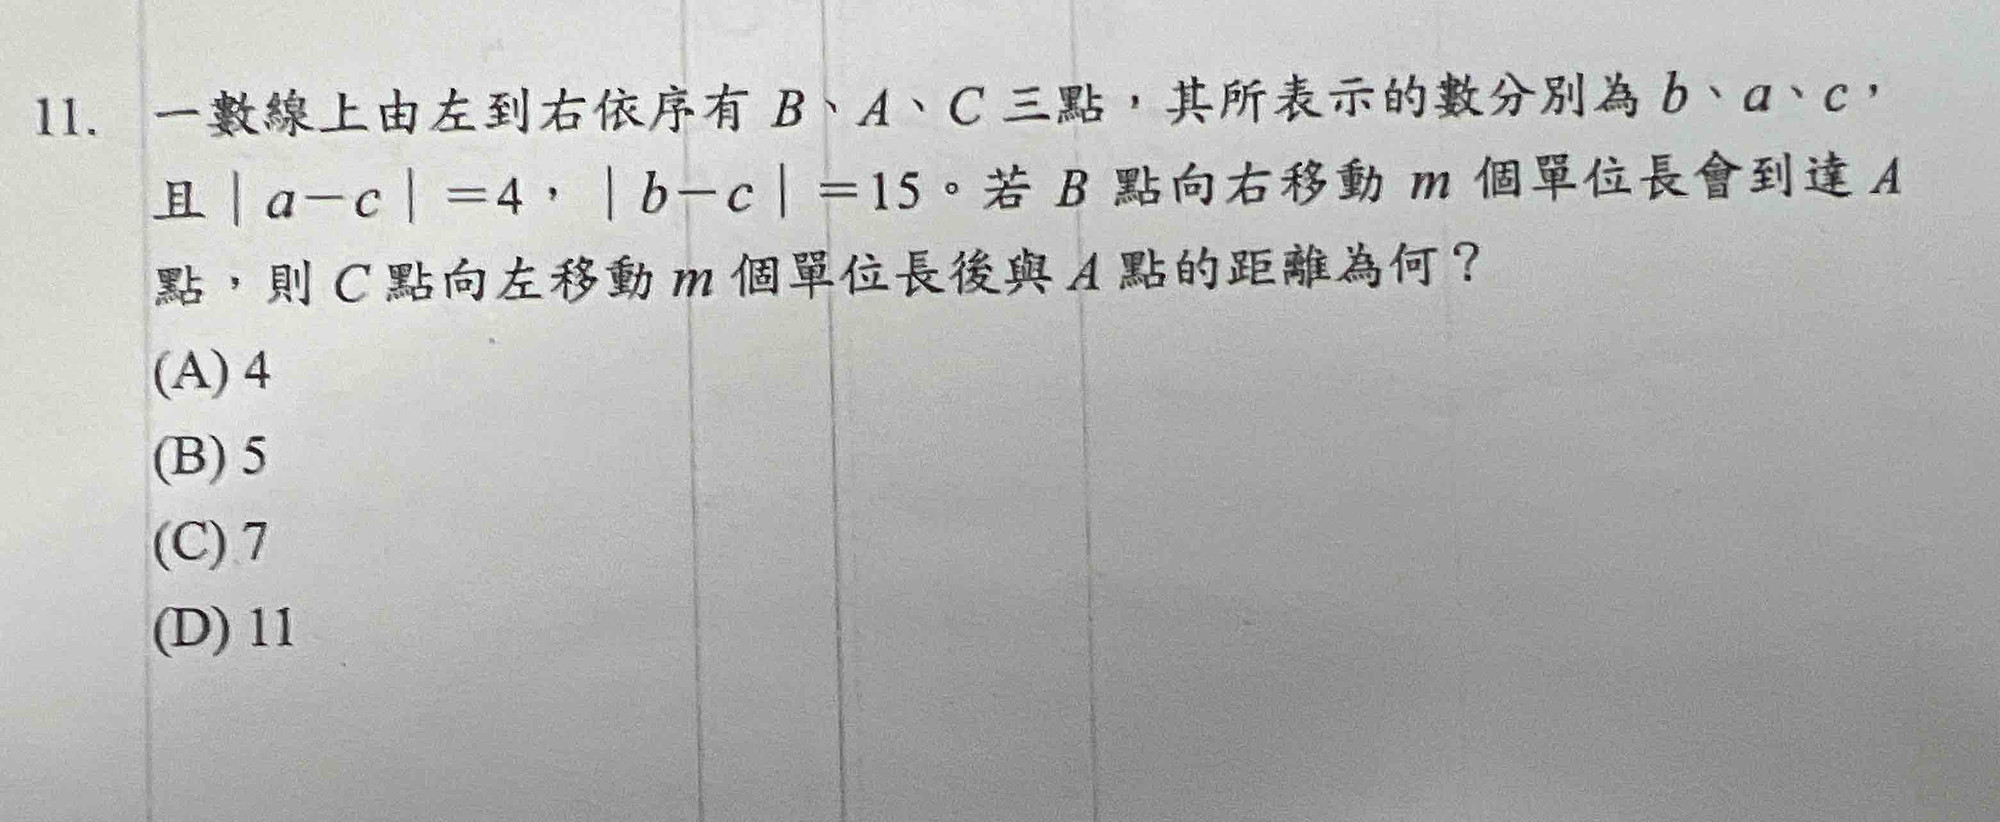 11. 一數線上由左到右依序有 B、A、C 三點，其所表示的數分別為 b、a、c，
且｜a－c｜＝4，｜b－c｜＝15。若 B 點向右移動 m 個單位長會到達 A
點，則 C 點向左移動 m 個單位長後與 A 點的距離為何？
(A) 4
(B) 5
(C) 7
(D) 11